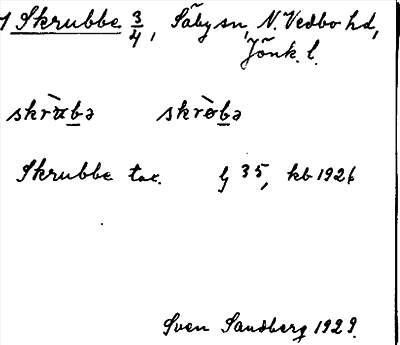 1 Skrubbe 3/4, Säby sn, N. Vedbo hd,
Jönk. l.
skrùbə skròbə
Skrubbe tor. lj 35, kb 1926
Sven Sandberg 1929.